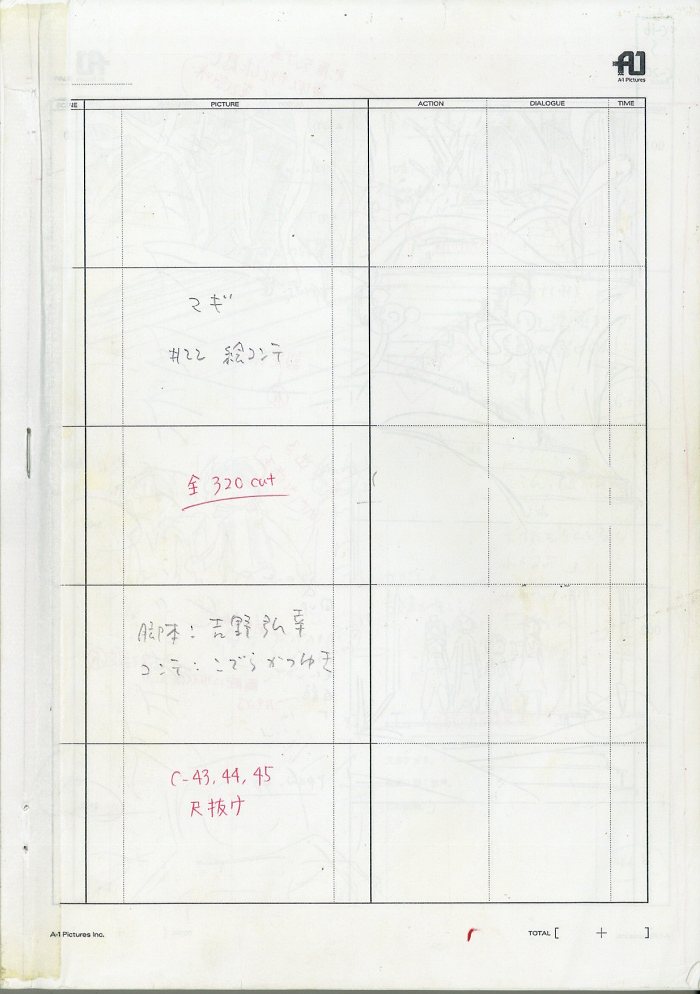 A-1 Pictures
PICTURE
ACTION
DIALOGUE
TIME
マギ
#22 絵コンテ
全 320 cut
脚本：吉野弘幸
コンテ：こでらかつゆき
C-43, 44, 45
尺抜け
A-1 Pictures Inc.
TOTAL [ + ]